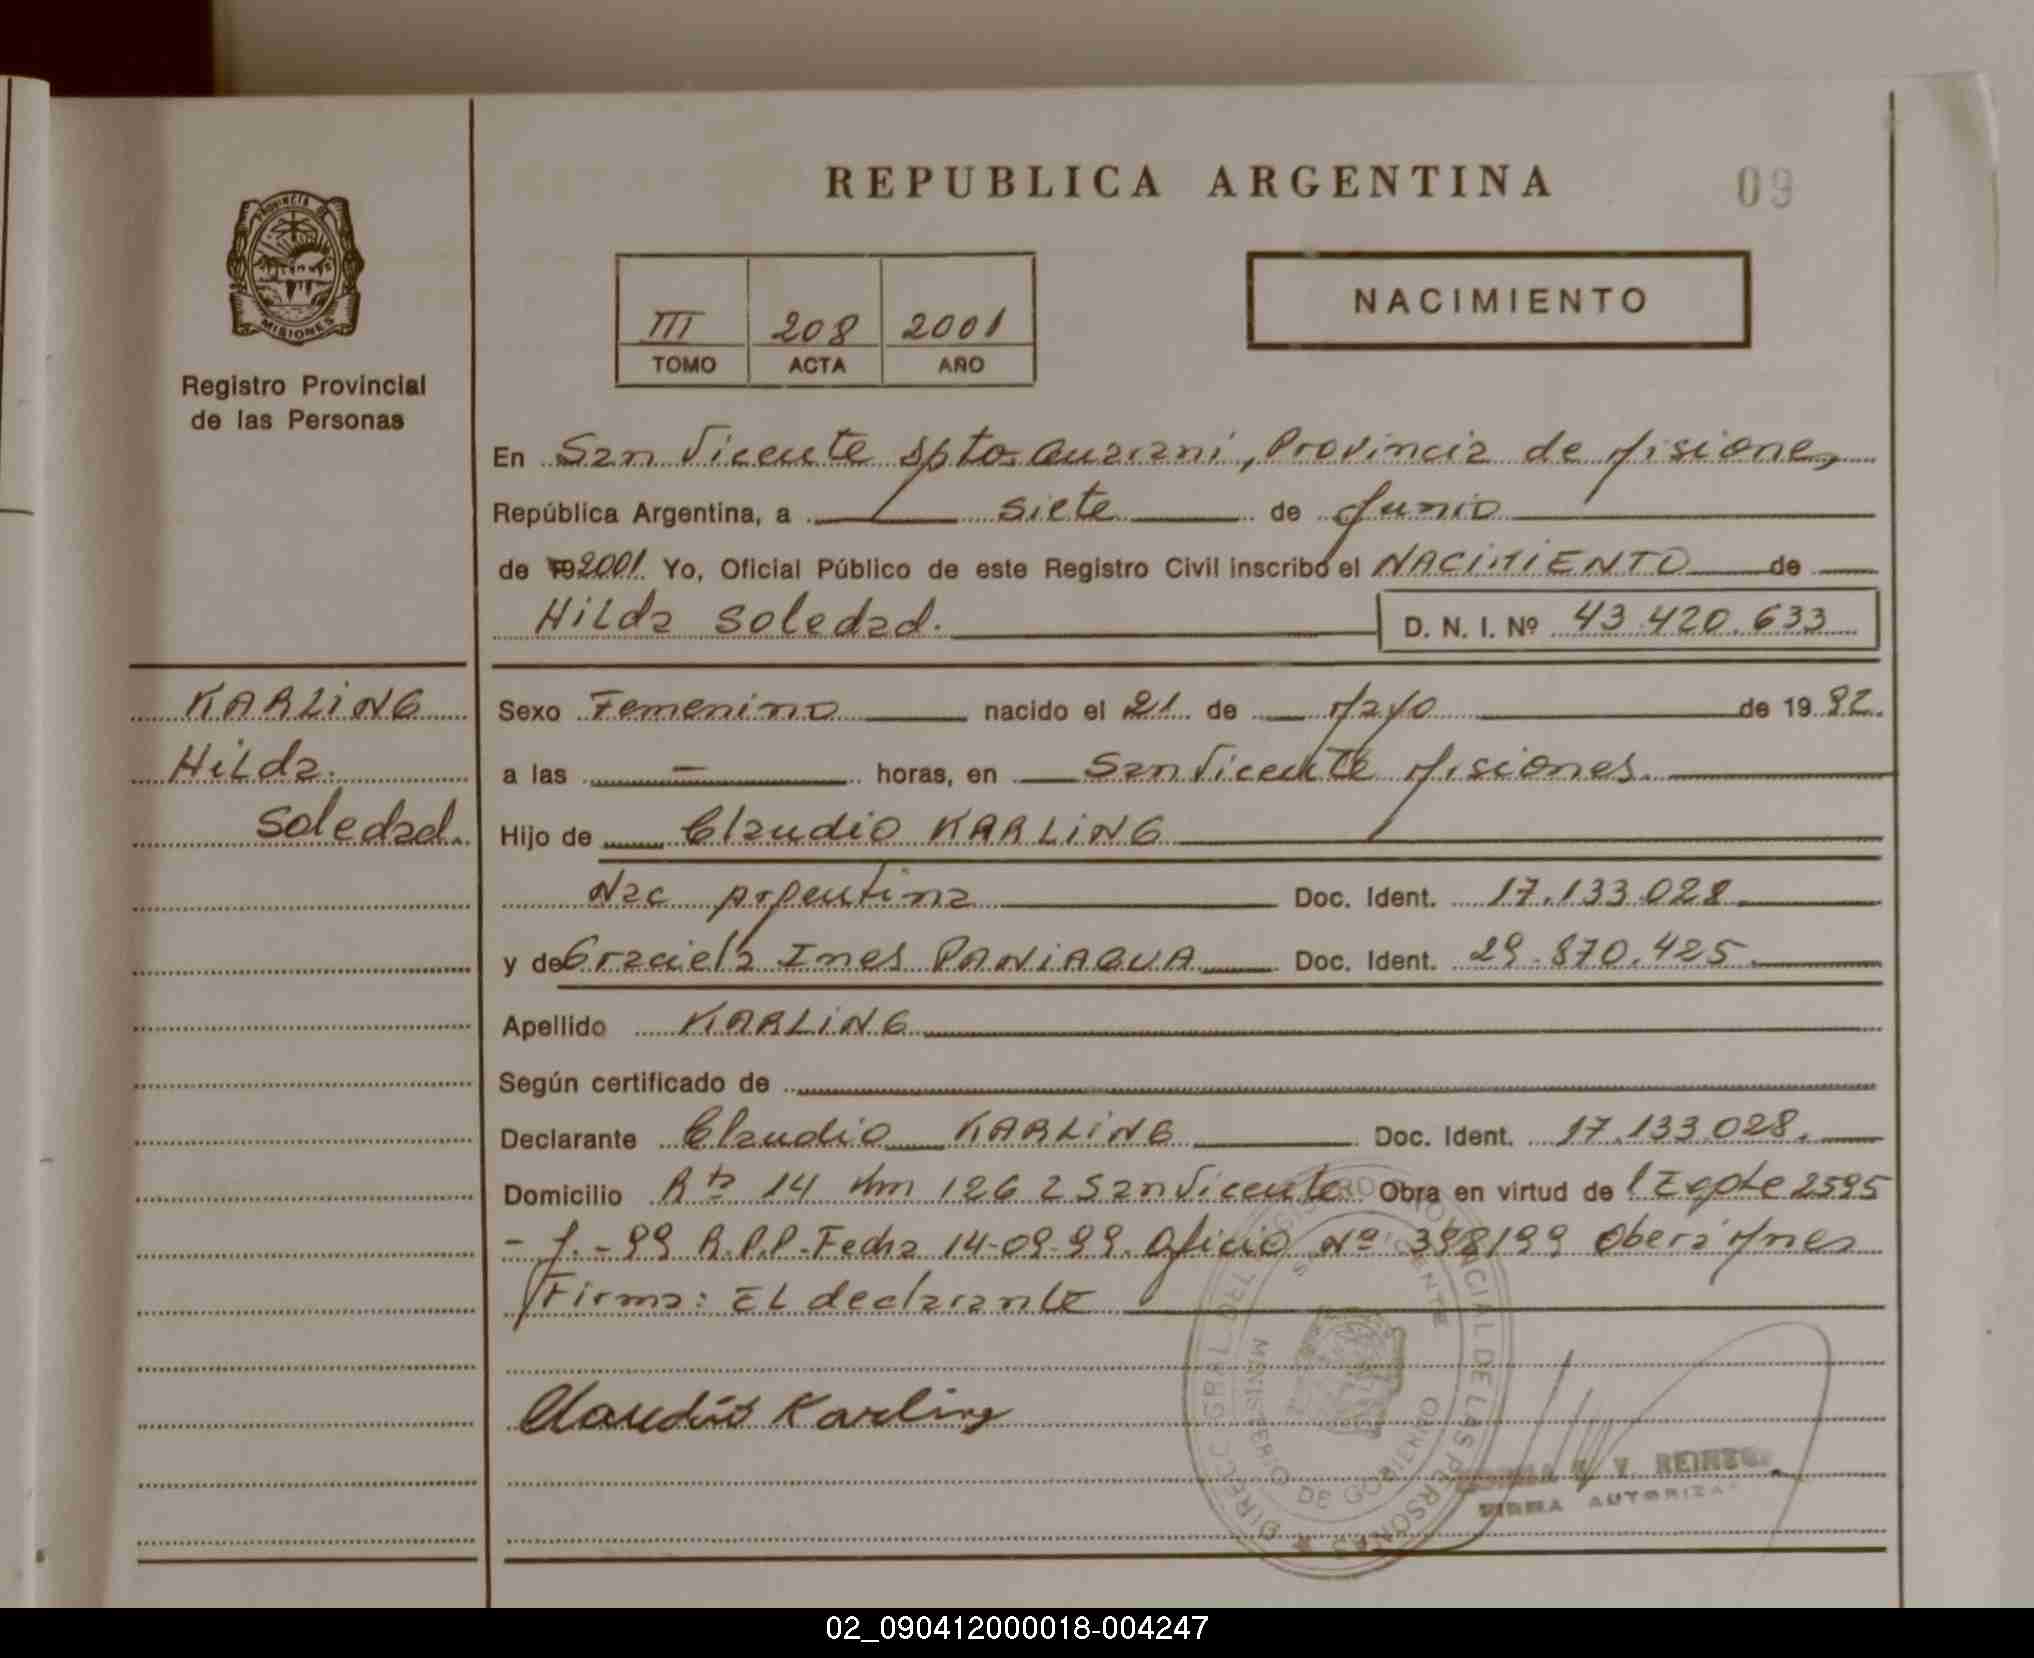 REPUBLICA ARGENTINA
09
PROVINCIA DE
MISIONES
Registro Provincial
de las Personas
III 208 2001
TOMO ACTA AÑO
NACIMIENTO
En San Vicente Dpto. Guarani, Provincia de Misiones
República Argentina, a siete de Junio
de 192001. Yo, Oficial Público de este Registro Civil inscribo el NACIMIENTO de
Hilda Soledad. D. N. I. Nº 43.420.633
KARLING
Hilda.
Soledad.
Sexo Femenino nacido el 21 de Mayo de 19 92.
a las - horas, en San Vicente Misiones.
Hijo de Claudio KARLING
Nac Argentina Doc. Ident. 17.133.028
y de Graciela Ines PANIAGUA Doc. Ident. 29.870.425.
Apellido KARLING
Según certificado de
Declarante Claudio KARLING Doc. Ident. 17.133.028.
Domicilio Rta 14 Km 1262 San Vicente. Obra en virtud de Expte 2595
-J.-99 R.P.P. Fecha 14-09-99. Oficio Nº 398/99 Obera Mnes
Firma: El declarante
Claudio Karling
DIRECC. GRAL. DEL REGISTRO PROVINCIAL DE LAS PERSONAS
MINISTERIO DE GOBIERNO
SAN VICENTE
FIRMA AUTORIZA
02_090412000018-004247